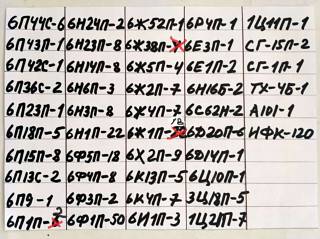 6П44С-6 6Н24П-2 6Ж52П-1 6Р4П-1 1Ц11П-1
6П43П-1 6Н23П-8 6Ж38П- 6Е3П-1 СГ-15П-2
6П42С-1 6Н14П-8 6Ж5П-4 6Е1П-2 СГ-1П-1
6П36С-2 6Н6П-3 6Ж2П-7 6Н16Б-2 ТХ-4Б-1
6П23П-1 6Н3П-8 6Ж4П-7 6С62Н-2 А101-1
6П18П-5 6Н1П-22 6Ж1П-18 6Ф20П-6 НФК-120
6П15П-8 6Ф5П-18 6Х2П-9 6Ф14П-1
6П13С-2 6Ф4П-8 6К13П-5 6Ц10П-1
6П9-1 6Ф3П-2 6К4П-7 3Ц18П-5
6П1П-2 6Ф1П-50 6И1П-3 1Ц21П-7